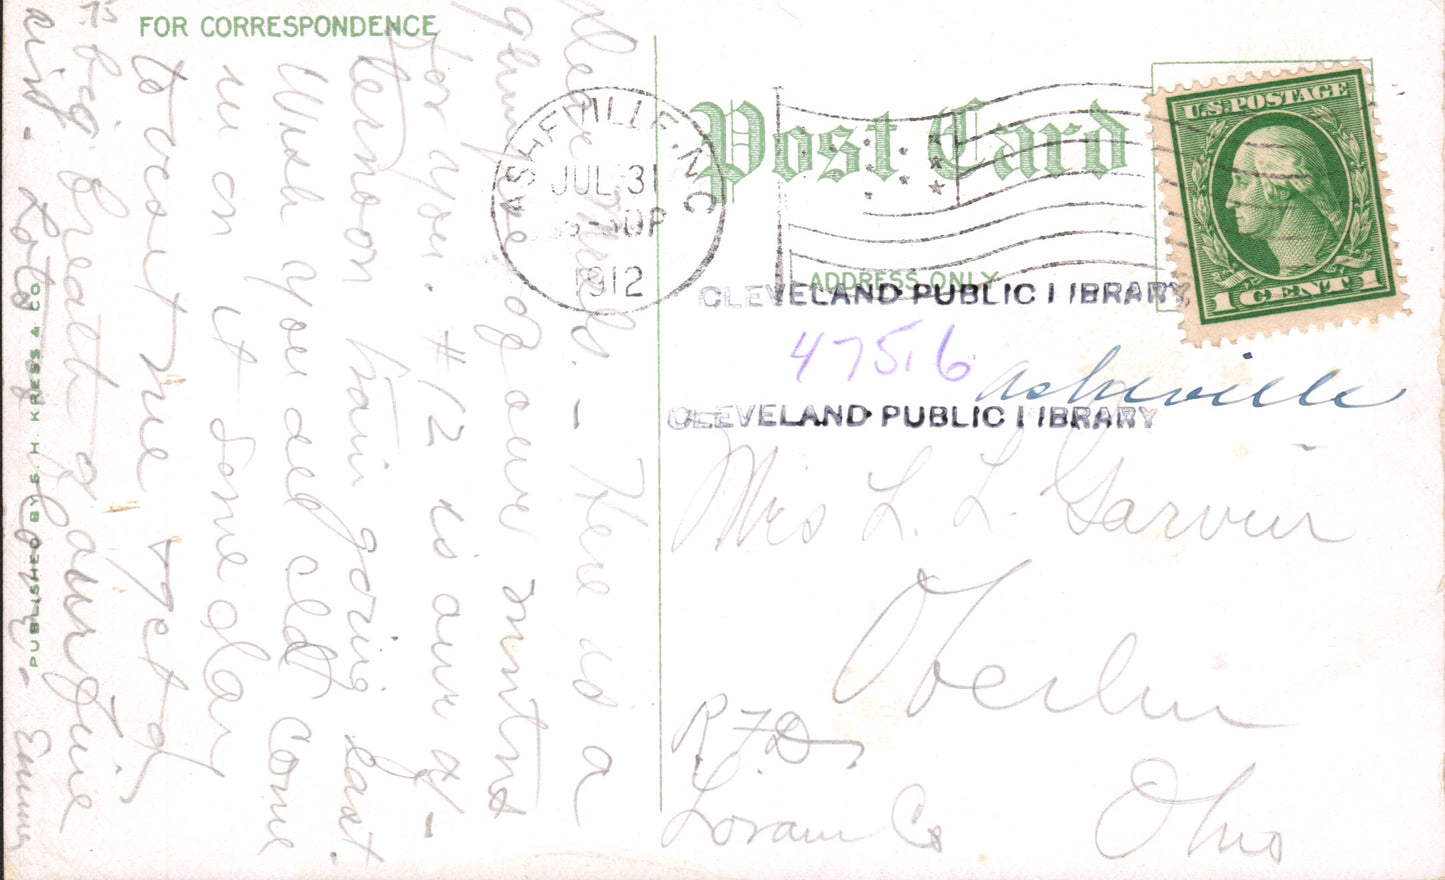 FOR CORRESPONDENCE
Post Card
ADDRESS ONLY
U.S. POSTAGE
1 CENT 1
ASHEVILLE, N.C.
JUL 31
1912
CLEVELAND PUBLIC LIBRARY
47516
Asheville
CLEVELAND PUBLIC LIBRARY
Mrs L. L. Garvin
Oberlin
R.F.D.
Lorain Co
Ohio
Here is a
glimpse of our mtns
for you. #12 is our af-
ternoon train going east
Wish you all cld come
in on it some day
to visit me & get
a big breath of our fine
air. Lots of Love - Emma
PUBLISHED BY S. H. KRESS & CO.